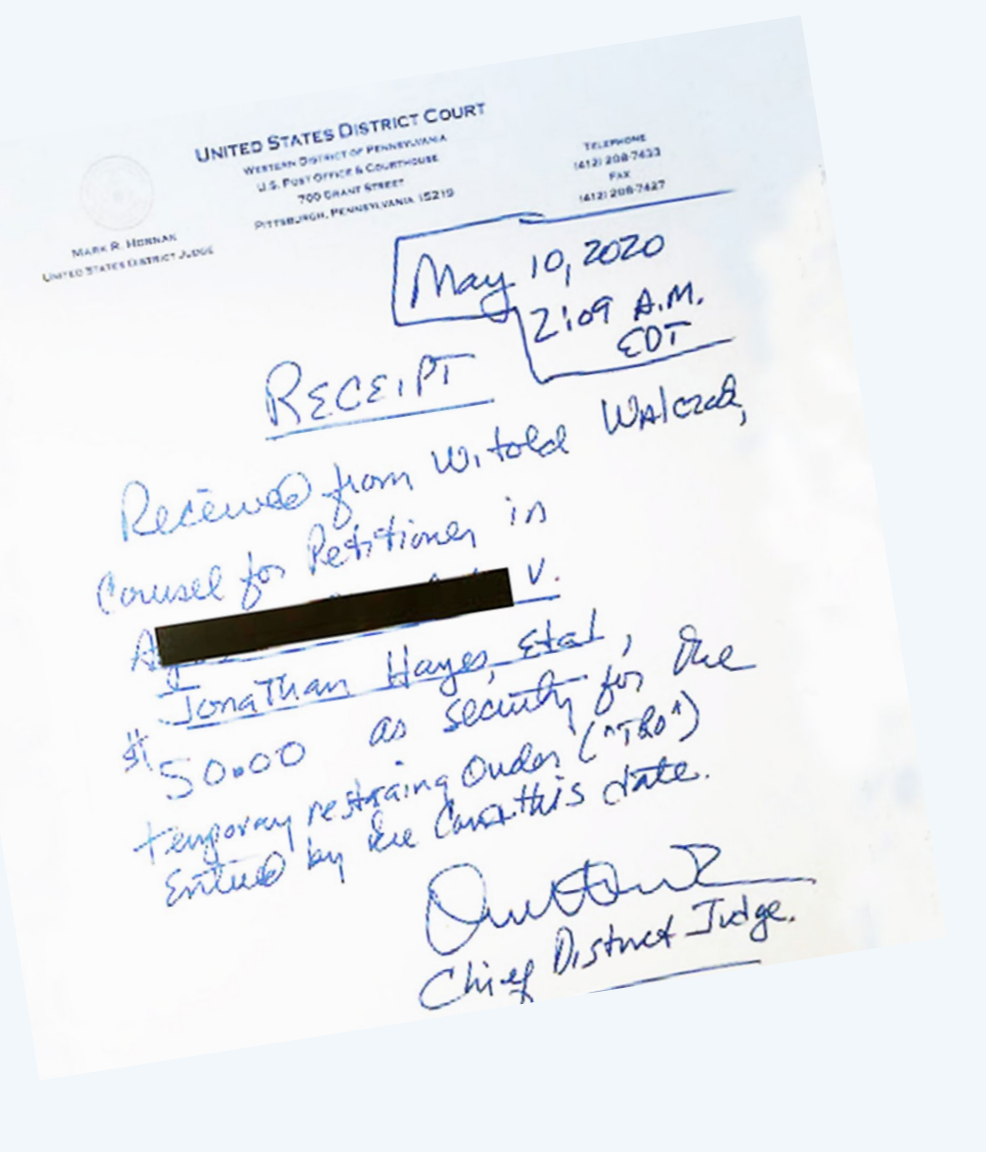 UNITED STATES DISTRICT COURT
WESTERN DISTRICT OF PENNSYLVANIA
U.S. POST OFFICE & COURTHOUSE
700 GRANT STREET
PITTSBURGH, PENNSYLVANIA 15219
TELEPHONE
(412) 208-7433
FAX
(412) 208-7427
MARK R. HORNAK
UNITED STATES DISTRICT JUDGE
May 10, 2020
2:09 A.M.
EDT
RECEIPT
Received from Witold Walczak,
Counsel for Petitioner in
v.
Jonathan Hayes, Etal,
$50.00 as security for the
temporary restraing Order ("TRO")
Entered by the Court this date.
Chief District Judge.